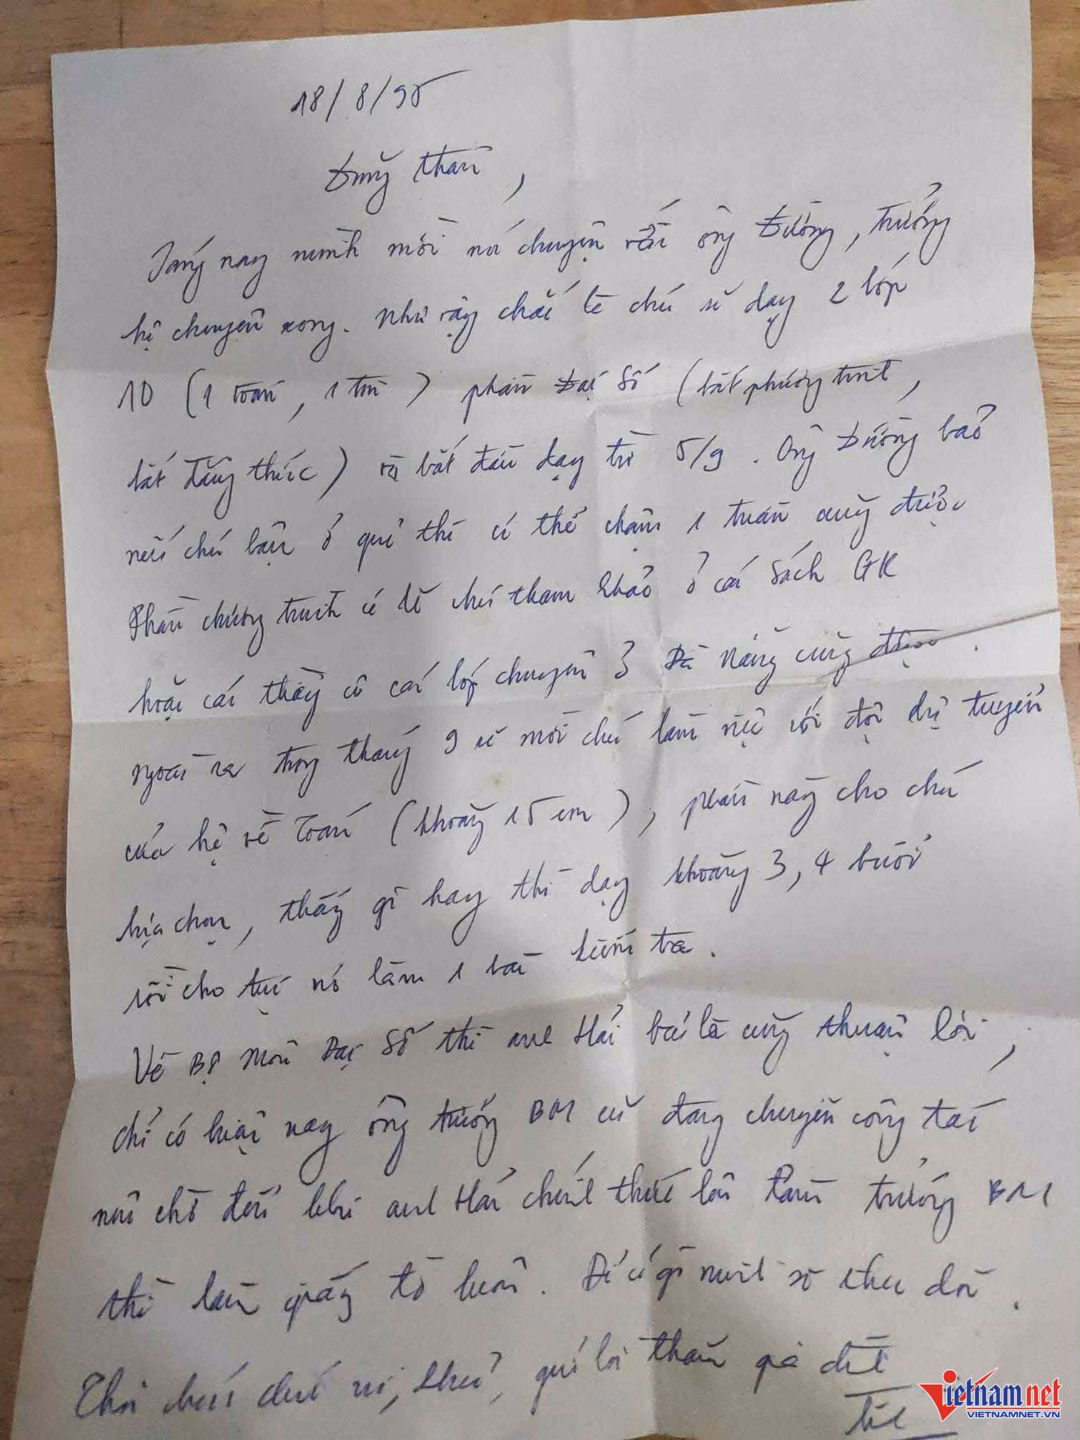 18/8/95
Dũng thân,
Sáng nay mình mới nói chuyện với ông Đường, trưởng
hệ chuyên xong. Như vậy chắc là chú sẽ dạy 2 lớp
10 (1 toán, 1 tin) phần Đại Số (bất phương trình,
bất đẳng thức) và bắt đầu dạy từ 5/9. Ông Đường bảo
nếu chú bận ở quê thì có thể chậm 1 tuần cũng được
Phần chương trình có lẽ chú tham khảo ở các Sách GK
hoặc các thầy cô các lớp chuyên ở Đà Nẵng cũng được.
Ngoài ra trong tháng 9 sẽ mời chú làm việc với đội dự tuyển
của hệ về Toán (khoảng 15 em), phần này cho chú
lựa chọn, thấy gì hay thì dạy khoảng 3, 4 buổi
rồi cho tụi nó làm 1 bài kiểm tra.
Về Bộ Môn Đại Số thì anh Hải bảo là cũng thuận lợi,
chỉ có hiện nay ông trưởng BM cũ đang chuyển công tác
nên chờ đến khi anh Hải chính thức lên làm trưởng BM
thì làm giấy tờ luôn. Có gì mình sẽ thư dài.
Thôi chúc chú vui, khỏe, gửi lời thăm gia đình
vietnamnet
VIETNAMNET.VN